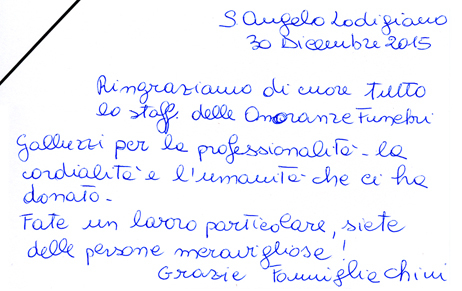 S Angelo Lodigiano
30 Dicembre 2015
Ringraziamo di cuore tutto
lo staff. delle Onoranze Funebri
Galluzzi per la professionalità - la
cordialità e l'umanità che ci ha
donato -
Fate un lavoro particolare, siete
delle persone meravigliose!
Grazie Famiglia Chini